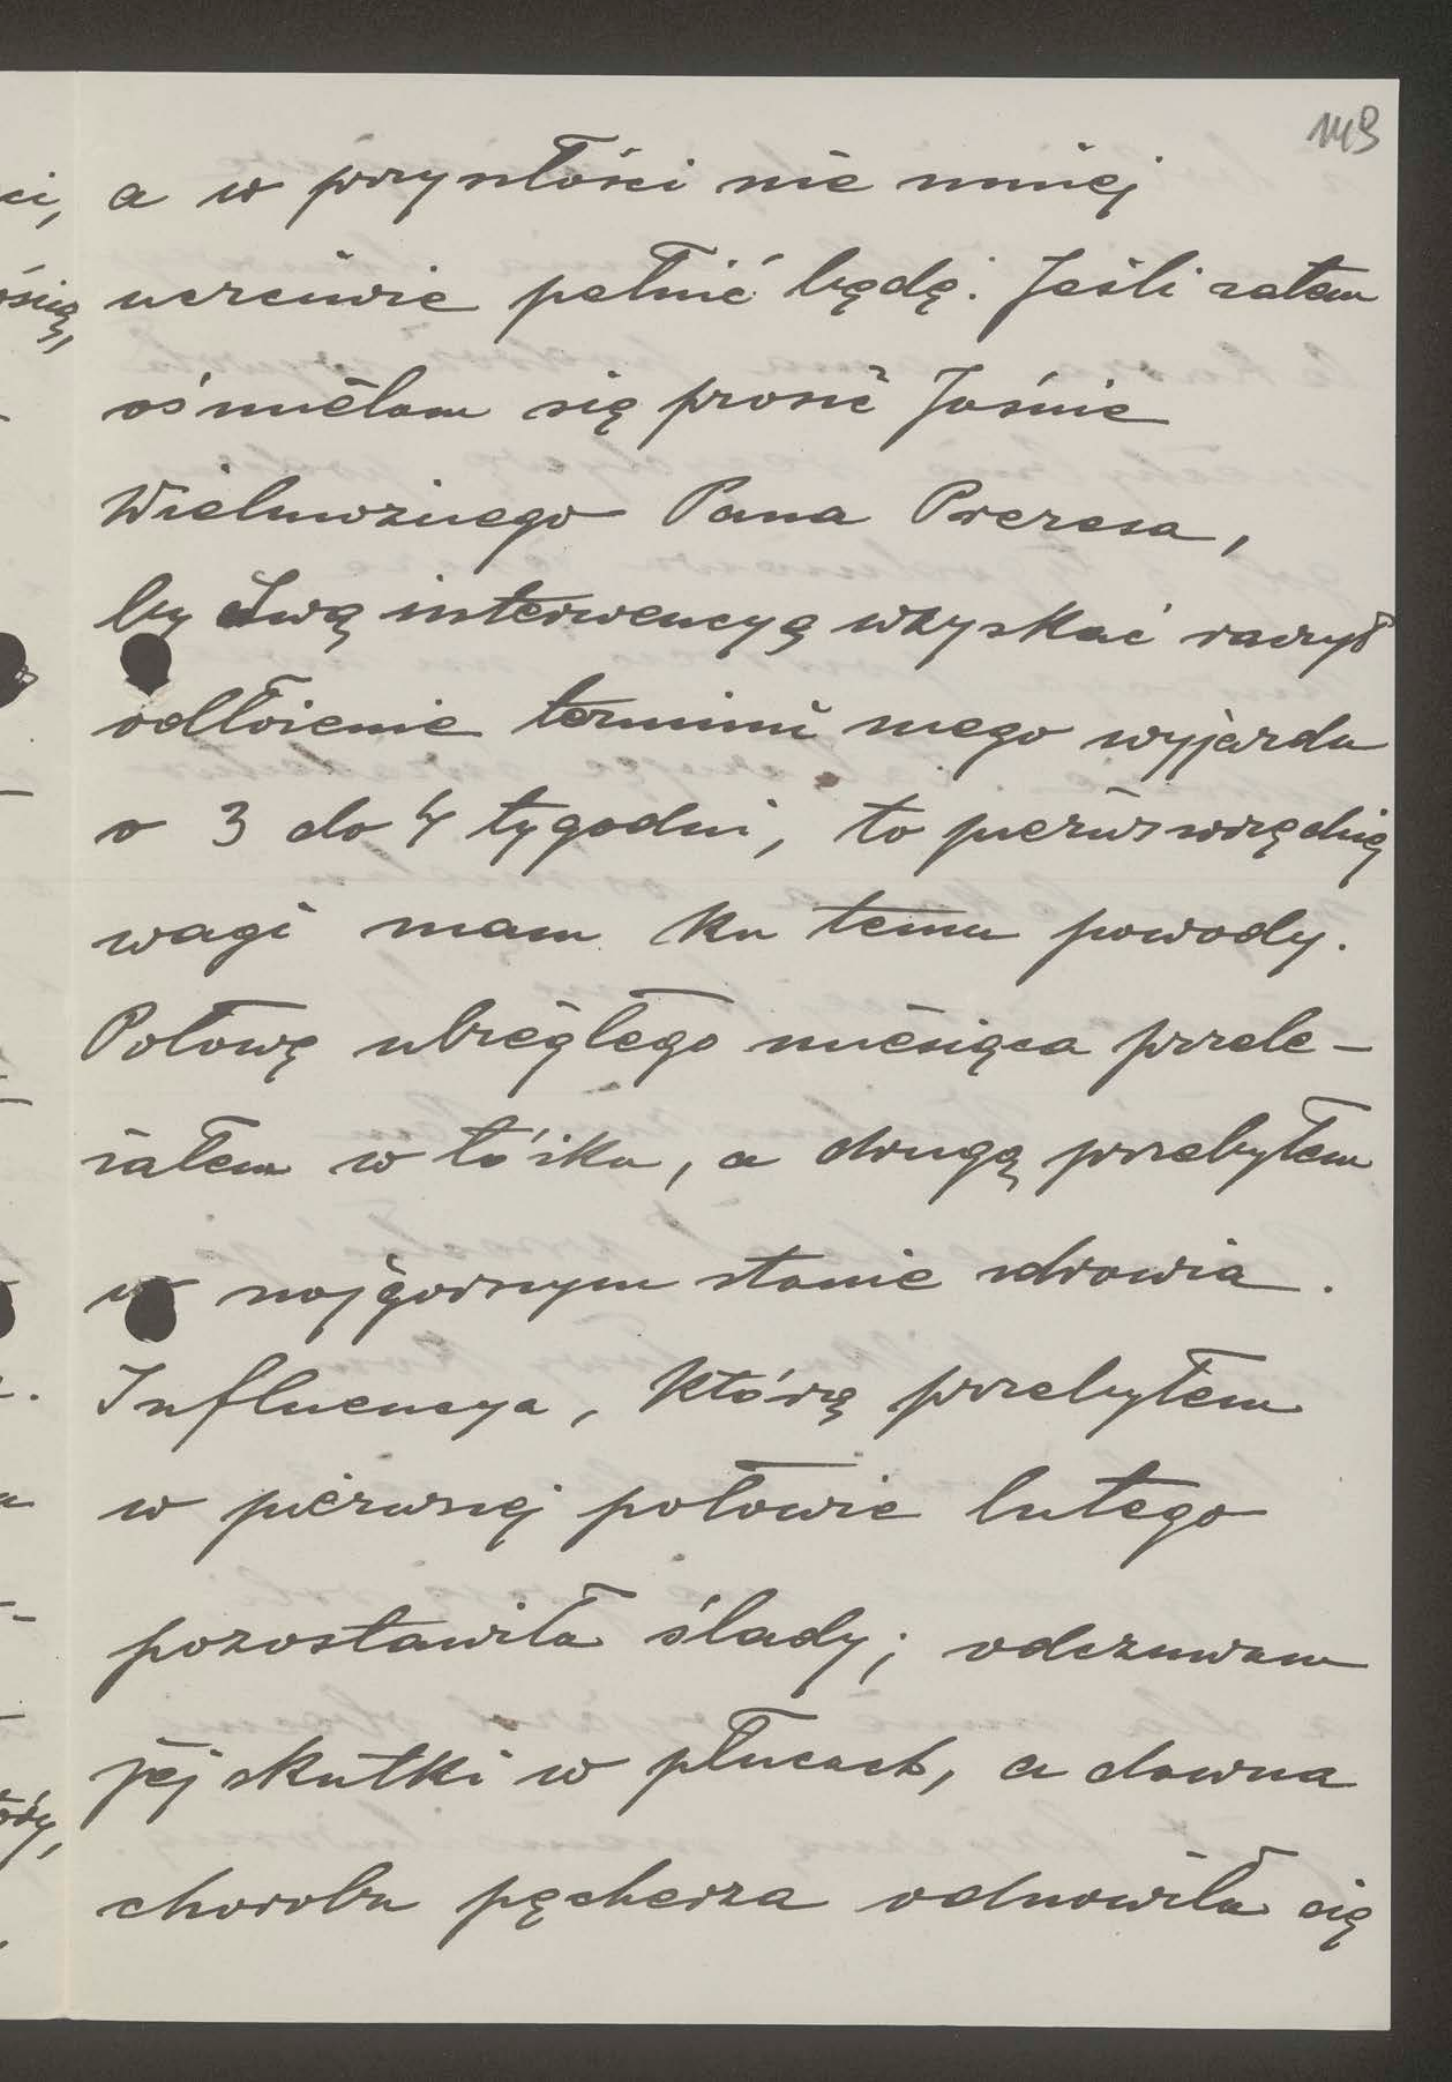 149
a w przyszłości nie mniej
uczciwie pełnić będę. Jeśli zatem
ośmielam się prosić Jaśnie
Wielmożnego Pana Prezesa,
by Swą interwencyą uzyskać raczył
odłożenie terminu mego wyjazdu
o 3 do 4 tygodni, to pierwszorzędnej
wagi mam ku temu powody.
Połowę ubiegłego miesiąca przele-
żałem w łóżku, a drugą przebyłem
w najgorszym stanie zdrowia.
Influencya, którą przebyłem
w pierwszej połowie lutego
pozostawiła ślady; odczuwam
jej skutki w płucach, a dawna
choroba pęcherza odnowiła się